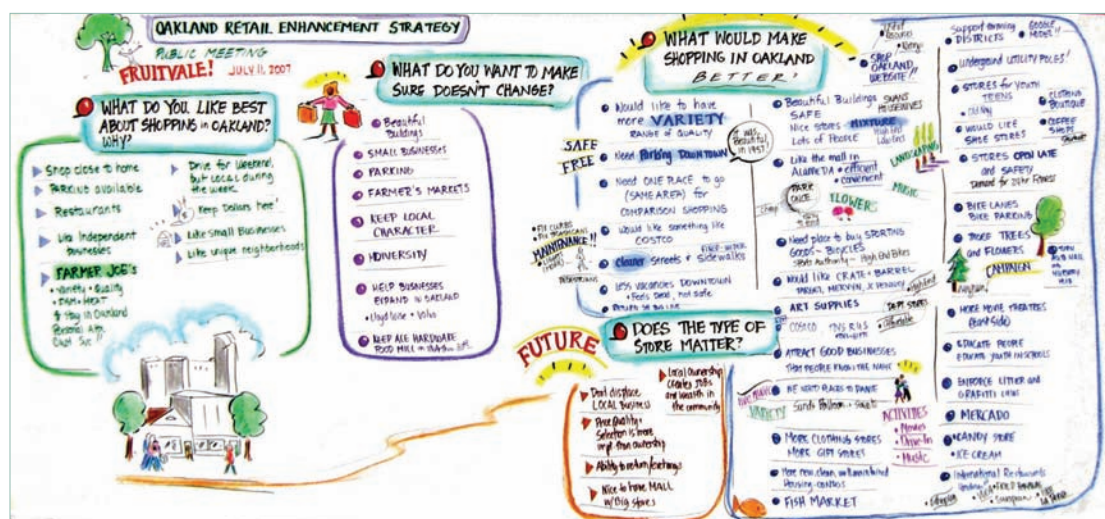 OAKLAND RETAIL ENHANCEMENT STRATEGY
PUBLIC MEETING
FRUITVALE! JULY 11, 2007
WHAT DO YOU LIKE BEST
ABOUT SHOPPING in OAKLAND?
WHY?
Shop close to home
PARKING available
Restaurants
Like Independent
businesses
FARMER JOE's
• Variety + Quality
• FISH + MEAT
$ Stay in Oakland
Drive for Weekend,
but Local during
the week
Keep Dollars here!
Like Small Businesses
Like unique neighborhoods
WHAT DO YOU WANT TO MAKE
SURE DOESN'T CHANGE?
Beautiful
Buildings
SMALL BUSINESSES
PARKING
FARMER'S MARKETS
KEEP LOCAL
CHARACTER
DIVERSITY
HELP BUSINESSES
EXPAND IN OAKLAND
KEEP ACE HARDWARE
FOOD MILL
WHAT WOULD MAKE
SHOPPING IN OAKLAND
BETTER?
Would like to have
more VARIETY
RANGE OF QUALITY
SAFE
FREE
Need Parking DOWNTOWN
It was
Beautiful
in 1957
Need ONE PLACE to go
(SAME AREA) for
COMPARISON SHOPPING
Would like something like
COSTCO
• FIX CURBS
MAINTENANCE!!
Cleaner Streets & Sidewalks
Less vacancies DOWNTOWN
• Feels Dead, not safe
Beautiful Buildings
SAFE
Nice Stores MIXTURE
Lots of People
SWANS
HOUSEWIVES
SHOP
OAKLAND
WEBSITE!!
Like the mall in
ALAMEDA • efficient
• convenient
PARK
ONCE
LANDSCAPING
MUSIC
FLOWERS
Need place to buy SPORTING
GOODS - BICYCLES
Sports Authority - High End Bikes
Would like CRATE + BARREL
TARGET, MERVYN, JC PENNEY
ART SUPPLIES
DEPT STORES
• Affordable
COSTCO TOYS R US
ATTRACT GOOD BUSINESSES
THAT PEOPLE KNOW THE NAME
LIVE MUSIC
VARIETY
WE NEED PLACES TO DANCE
ACTIVITIES
• Movies
• Drive-In
• Music
MORE CLOTHING STORES
MORE GIFT STORES
FISH MARKET
Support
DISTRICTS
GOOGLE
MODEL!!
Underground UTILITY POLES!
STORES for Youth
TEENS
• Old Navy
CLOTHING
BOUTIQUE
WOULD LIKE
SHOE STORES
COFFEE
SHOPS
STORES OPEN LATE
and SAFETY
Demand for 24hr Fitness
BIKE LANES
BIKE PARKING
MORE TREES
and FLOWERS
CAMPAIGN
MORE MOVIE THEATRES
(East Side)
EDUCATE PEOPLE
EDUCATE YOUTH IN SCHOOLS
ENFORCE LITTER and
GRAFFITI LAWS
MERCADO
CANDY STORE
• ICE CREAM
International Restaurants
FUTURE
DOES THE TYPE OF
STORE MATTER?
Don't displace
LOCAL Business
Price Quality +
Selection is more
impt than ownership
Ability to return/exchange
Nice to have MALL
w/ Big Stores
Local Ownership
Creates JOBS
and wealth in
the community